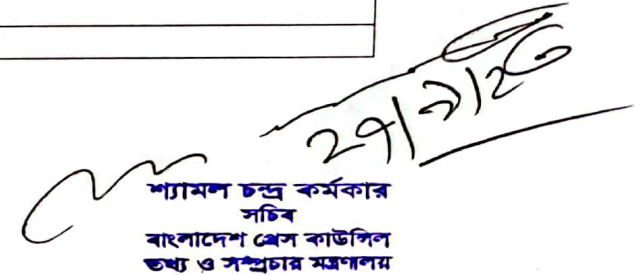 ২৭/৯/২৩
শ্যামল চন্দ্র কর্মকার
সচিব
বাংলাদেশ প্রেস কাউন্সিল
তথ্য ও সম্প্রচার মন্ত্রণালয়